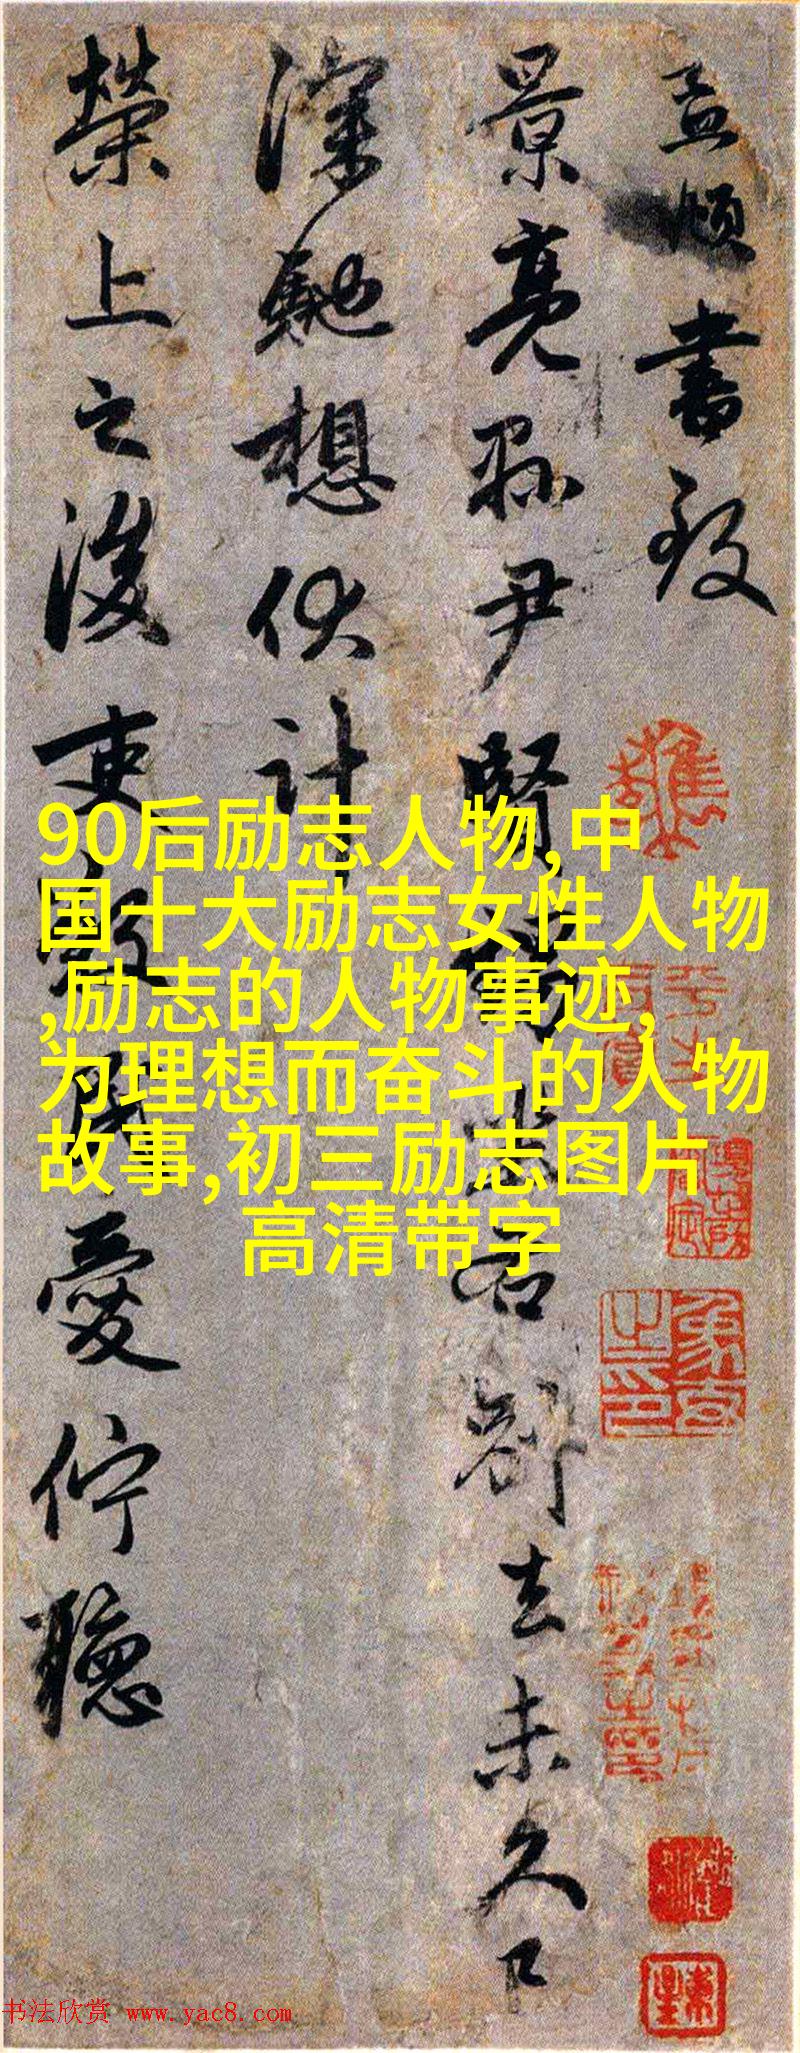 孟頫書致
景亮縣尹賢別去未久
深馳想伏計
榮上之後吏民愛佇聽
90后励志人物,中
国十大励志女性人物
,励志的人物事迹,
为理想而奋斗的人物
故事,初三励志图片
高清带字
书法欣赏 www.yac8.com